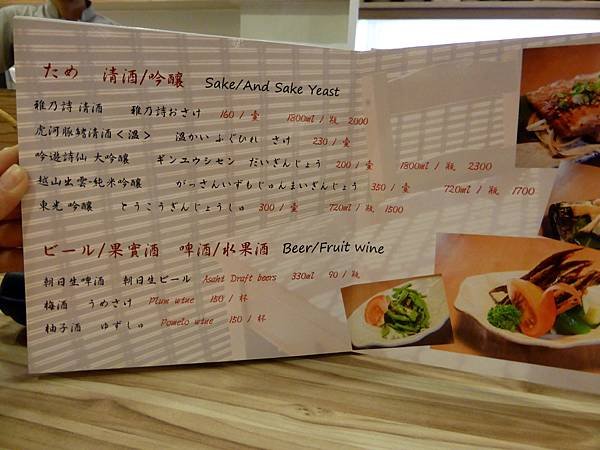 ため 清酒/吟釀 Sake/And Sake Yeast
雅乃詩 清酒 雅乃詩おさけ 160 / 壷 1800ml / 瓶 2000
虎河豚鰭清酒<溫> 温かい ふぐひれ さけ 230 / 壷
吟遊詩仙 大吟釀 ギンユウシセン だいぎんじょう 200 / 壷 1800ml / 瓶 2300
越山出雲-純米吟釀 がっさんいずもじゅんまいぎんじょう 350 / 壷 720ml / 瓶 1700
東光 吟釀 とうこうぎんじょうしゅ 300 / 壷 720ml / 瓶 1500
ビール/果實酒 啤酒/水果酒 Beer/Fruit wine
朝日生啤酒 朝日生ビール Asahi Draft beers 330ml 90 / 瓶
梅酒 うめさけ Plum wine 150 / 杯
柚子酒 ゆずしゅ Pomelo wine 150 / 杯